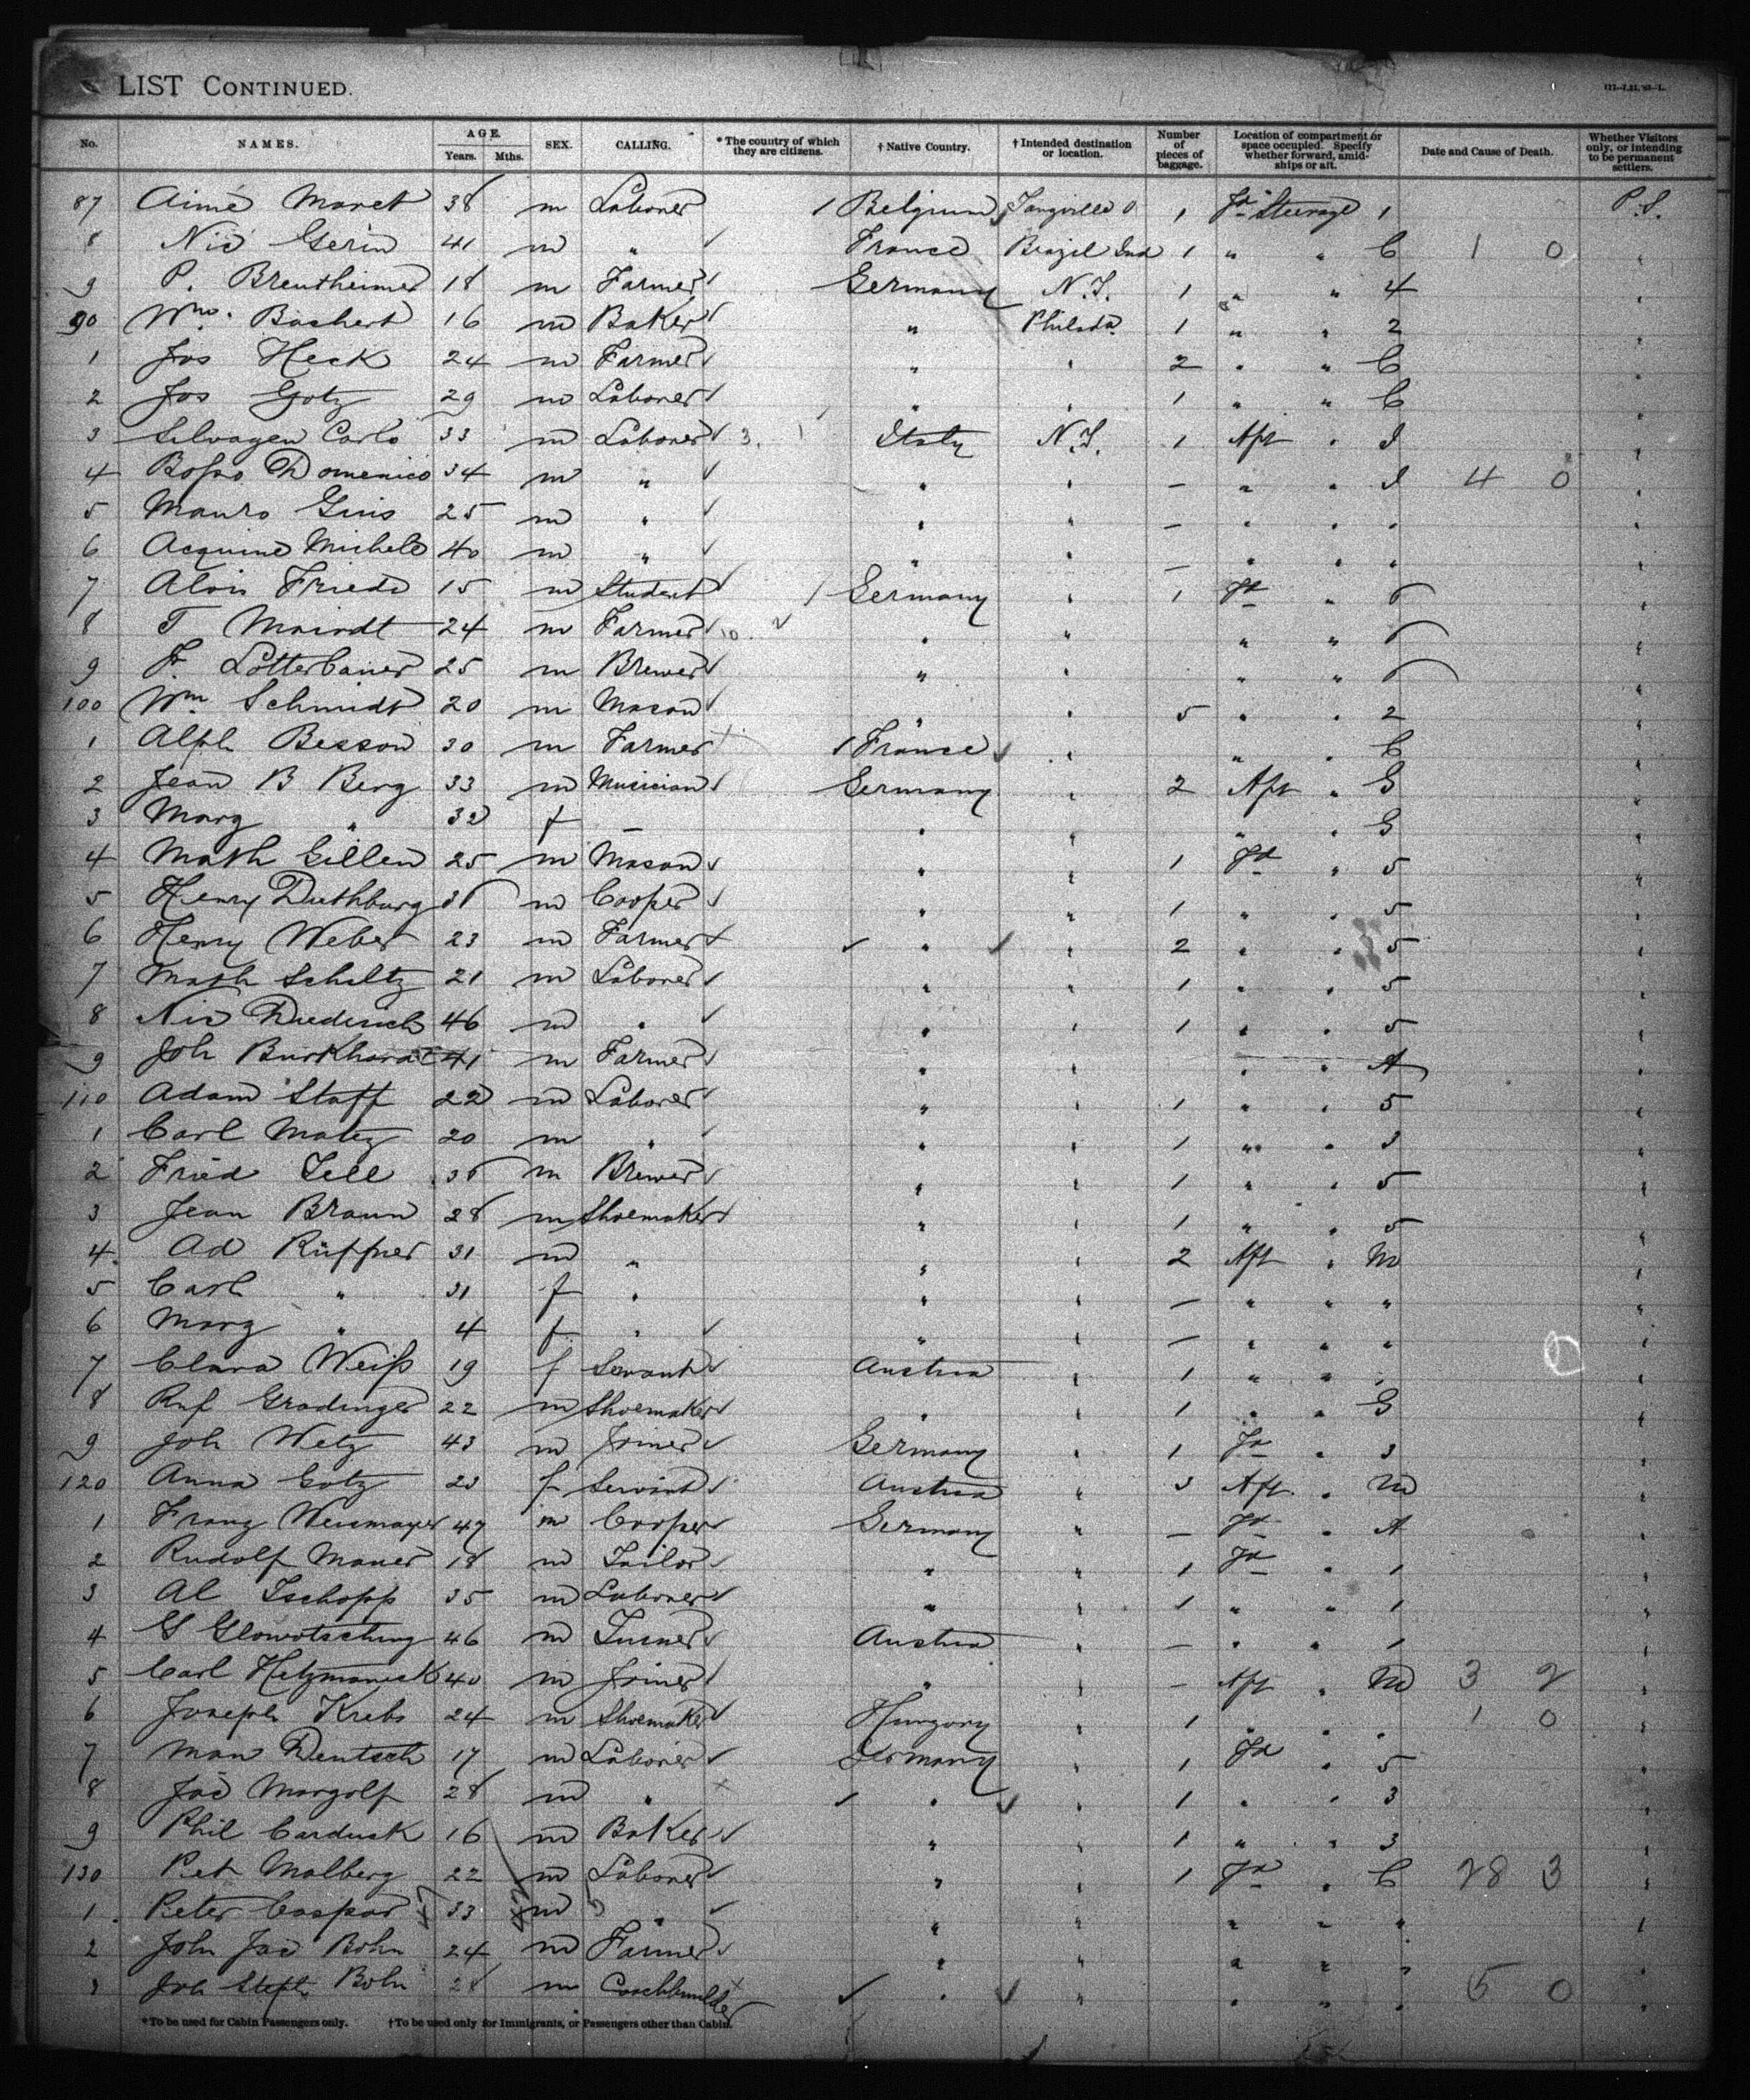 LIST CONTINUED.
No. NAMES. AGE. Years. Mths. SEX. CALLING. *The country of which they are citizens. †Native Country. †Intended destination or location. Number of pieces of baggage. Location of compartment or space occupied. Specify whether forward, amidships or aft. Date and Cause of Death. Whether Visitors only, or intending to be permanent settlers.
87 Aimé Maret 38 m Laborer 1 Belgium 1 Fd Steerage 1 P.S.
8 Nic Gerin 41 m " France Brazil Ind 1 " " C 1 0 "
9 P. Breutheimer 18 m Farmer Germany N.Y. 1 " " 4 "
90 Wm. Bachert 16 m Baker " Philada 1 " " 2 "
1 Jos Heck 24 m Farmer " " 2 " " C "
2 Jos Gotz 29 m Laborer " " 1 " " C "
3 Selvagen Carlo 33 m Laborer 3. Italy N.Y. 1 Aft " I "
4 Domenico 34 m " " " – " " I 4 0 "
5 Mauro 25 m " " " – " " " "
6 Michele 40 m " " " – " " " "
7 Alois Friede 15 m Student 1 Germany " 1 Fd " "
8 T 24 m Farmer 10. " " " " "
9 F. Lotterbauer 25 m Brewer " " " " "
100 Wm Schmidt 20 m Mason " " 5 " " 2 "
1 Alph Besson 30 m Farmer 1 France " " " C "
2 Jean B Berg 33 m Musician Germany " 2 Aft " G "
3 Marg " 32 f – " " " " G "
4 Math Gillen 25 m Mason " " 1 Fd " 5 "
5 Henry Duthburg m Cooper " " 1 " " 5 "
6 Henry Weber 23 m Farmer " " 2 " " 5 "
7 Math Schultz 21 m Laborer " " 1 " " 5 "
8 Nic Diederich 46 m " " " 1 " " 5 "
9 Joh Burkhardt 41 m Farmer " " " " A "
110 Adam Staff 22 m Laborer " " 1 " " 5 "
1 Carl Matz 20 m " " " 1 " " 3 "
2 Fried m Brewer " " 1 " " 5 "
3 Jean Braun 28 m Shoemaker " " 1 " " 5 "
4 Ad Rüffner 31 m " " " 2 Aft " M "
5 Carl " 31 f " " " – " " " "
6 Marg " 4 f " " " – " " " "
7 Clara Weiss 19 f Servant Austria " 1 " " " "
8 Ruf Gradinger 22 m Shoemaker " " 1 " " G "
9 Joh Wetz 43 m Joiner Germany " 1 Fd " 3 "
120 Anna Gotz 23 f Servant Austria " 3 Aft " M "
1 Franz Weismayer 47 m Cooper Germany " – Fd " A "
2 Rudolf Mauer 18 m Tailor " " 1 Fd " 1 "
3 Al Tschopp 35 m Laborer " " 1 " " 1 "
4 G 46 m Turner Austria " – " " 1 "
5 Carl 40 m Joiner " " – Aft " M 3 2 "
6 Joseph Krebs 24 m Shoemaker Hungary " 1 " " " 1 0 "
7 Deutsch 17 m Laborer Germany " 1 Fd " 5 "
8 Jac Margolf 28 m " " " 1 " " 3 "
9 Phil Carduck 16 m Baker " " 1 " " 3 "
130 Pet Malberg 22 m Laborer " " 1 Fd " C 28 3 "
1 Peter Caspar 33 m " " " " " " "
2 John Jac Bohn 24 m Farmer " " " " " "
3 Joh Steph Bohn 28 m Coachbuilder " " " " " 5 0 "
*To be used for Cabin Passengers only. †To be used only for Immigrants, or Passengers other than Cabin.